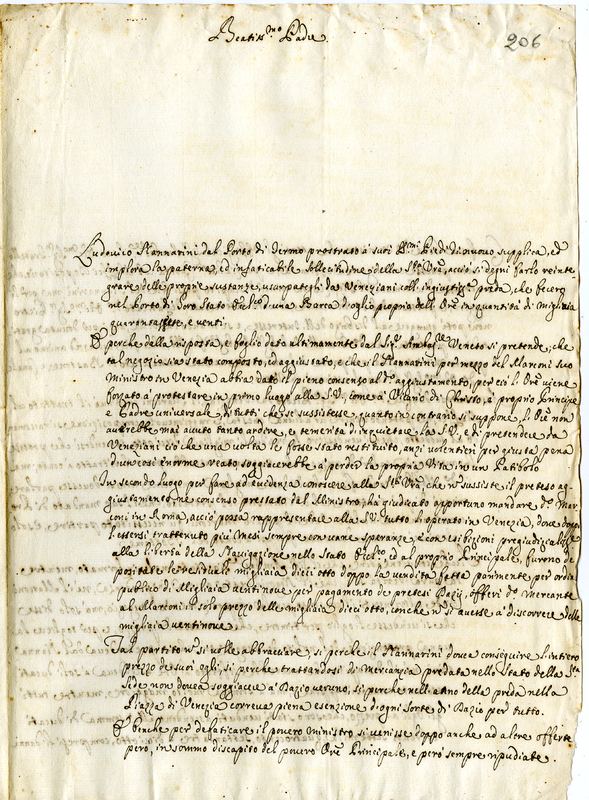 Beatiss.mo Padre.
206
Ludovico Mannarini dal Porto di Fermo prostrato à suoi SS.mi Piedi di nuovo supplica, ed
implora la paterna, ed infaticabile sollecitudine della S.tà Vrã, acciò si degni farlo reinte
grare delle proprie sustanze, usurpategli da Veneziani coll'ingiustiz.ma preda, che fecero
nel Porto di Goro Stato Ecles.co d'una Barca d'oglio propria dell'Ore in quantità di Migliaia
quarantasette, e venti,
E perche dalla risposta, e foglio dato ultimamente dal Sig.r Ambas.re Veneto si pretende, che
tal negozio sia stato composto, ed aggiustato, e che il Mannarini per mezzo del Marconi suo
Ministro in Venezia abbia dato il pieno consenso al d.o aggiustamento, perciò l'Ore viene
forzato à protestare in primo luogo alla S.V., come à Vicario di Christo, à proprio Principe
e Padre universale di tutti che se sussistesse, quanto in contrario si suppone, l'Ore non
averebbe mai avuto tanto ardire, e temerità d'inquietare la S.V., e di pretendere da
Veneziani ciò che una volta le fosse stato restituito, anzi volentieri per giusta pena
d'un così enorme reato soggiacerebbe à perder la propria Vita in un Patibolo
In secondo luogo per fare ad evidenza conoscere alla S.tà Vrã, che nõ sussiste il preteso ag
giustamento, ne consenso prestato dal Ministro, hà giudicato opportuno mandare d.o Mar
coni in Roma, acciò possa rappresentare alla S.V. tutto l'operato in Venezia, dove doppo
l'essersi trattenuto più Mesi sempre con vane speranze, e con esibizioni pregiudiziali
alla libertà della Navigazione nello Stato Ecles.co, ed al proprio Principale, furono de
positate le residuali migliaia dieci otto doppo la vendita fatta parimente per ordine
publico di Migliaia ventinove per pagamento de pretesi Dazij, offerì d.o Mercante
al Marconi il solo prezzo delle migliaia dieci otto, con che nõ si avesse à discorrere delle
migliaia ventinove.
Tal partito nõ si volle abbracciare, si perche il Mannarini dovea conseguire l'intiero
prezzo de suoi ogli, si perche trattandosi di Mercanzia predata nello Stato della S.ta
Sede non dovea soggiacere à Dazio veruno, si perche nell'atto della preda nella
Piazza di Venezia correva piena esenzione d'ogni sorte di Dazio per tutto.
E benche per defaticare il povero Ministro si venisse doppo anche ad altre offerte
però, in sommo discapito del povero Ore Principale, e però sempre ripudiate.